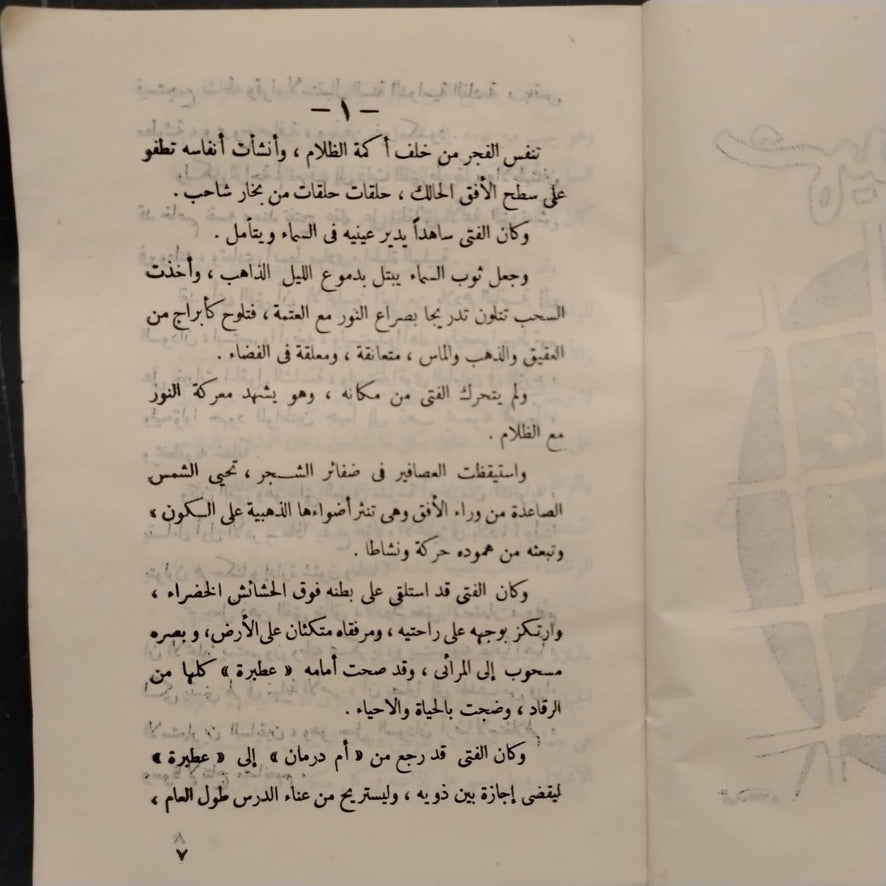 — ١ —
تنفس الفجر من خلف أكمة الظلام ، وأنشأت أنفاسه تطفو
على سطح الأفق الحالك ، حلقات حلقات من بخار شاحب .
وكان الفتى ساهداً يدير عينيه فى السماء ويتأمل .
وجعل ثوب السماء يبتل بدموع الليل الذاهب ، وأخذت
السحب تتلون تدريجا بصراع النور مع العتمة ، فتلوح كأبراج من
العقيق والذهب والماس ، متعانقة ، ومعلقة فى الفضاء .
ولم يتحرك الفتى من مكانه ، وهو يشهد معركة النور
مع الظلام .
واستيقظت العصافير فى ضفائر الشجر ، تحيى الشمس
الصاعدة من وراء الأفق وهى تنثر أضواءها الذهبية على السكون ،
وتبعثه من هموده حركة ونشاطا .
وكان الفتى قد استلقى على بطنه فوق الحشائش الخضراء ،
وارتكز بوجهه على راحتيه ، ومرفقاه متكئان على الأرض، وبصره
مسحوب إلى المرأى ، وقد صحت أمامه « عطبرة » كلها من
الرقاد ، وضجت بالحياة والاحياء .
وكان الفتى قد رجع من « أم درمان » إلى « عطبرة »
ليقضى إجازة بين ذويه ، وليستريح من عناء الدرس طول العام ،
٧